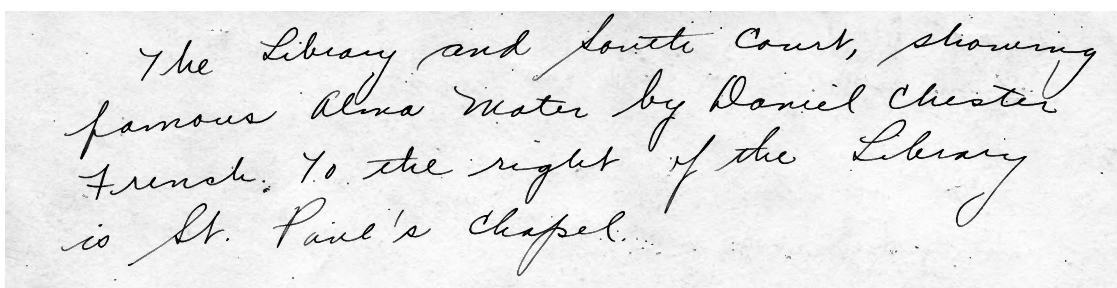 The Library and South Court, showing
famous Alma Mater by Daniel Chester
French. To the right of the Library
is St. Paul's Chapel.